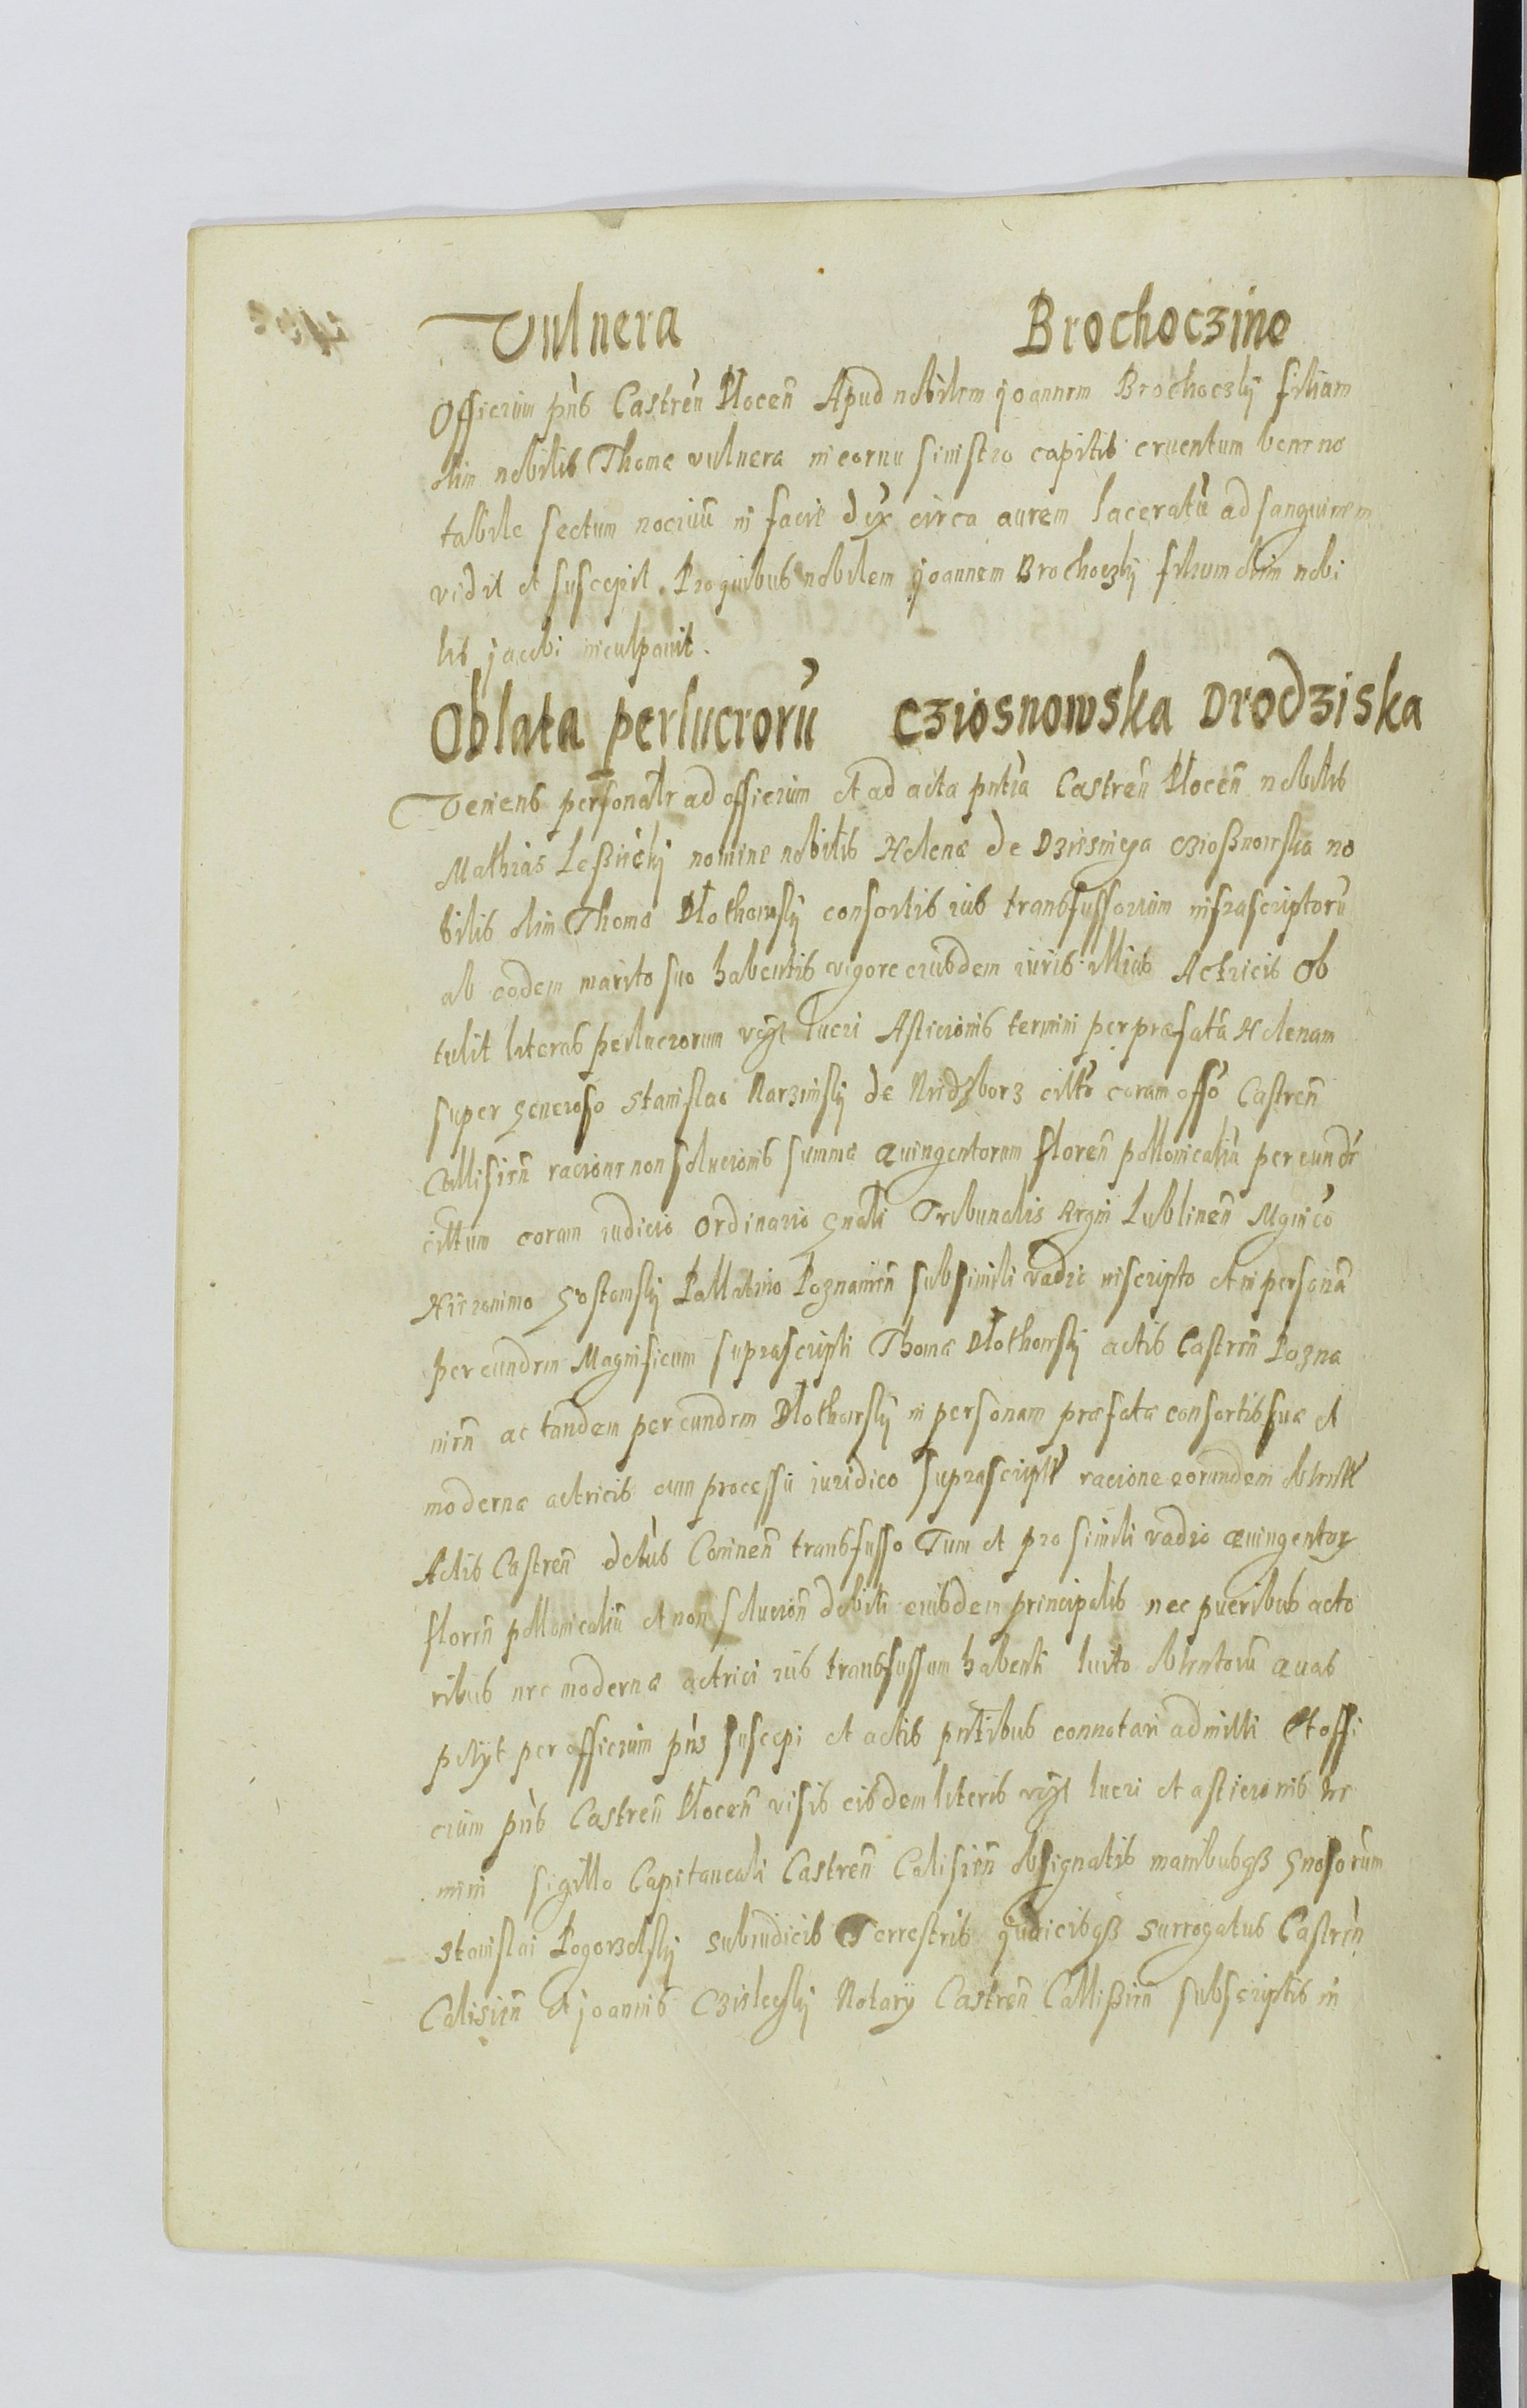 Vulnera Brochoczino
Officium pñs Castreñ Ploceñ Apud nobilem joannem Brochoczky filium
olim nobilis Thomæ vulnera in cornu sinistro capitis cruentum bene no
tabile sectum nocivũ in facie dex circa aurem laceratũ ad sanguinem
vidit et suscepit. Pro quibus nobilem joannem Brochoczky filium olim nobi
lis jacobi inculpavit.
Oblata perlucrorũ Cziosnowska Drodziska
Veniens personalr ad officium et ad acta pntia Castreñ Ploceñ nobilis
Mathias nomine nobilis Helenæ de Cziosznowska no
bilis olim Thomæ Plothowsky consortis ius transfussorium infrascriptorũ
ab eodem marito suo habentis vigore eiusdem iuris illius Actricis Ob
tulit literas perlucrorum lucri Asticionis termini per præfatã Helenam
super Generoso Stanislao Narzimsky de Nidzborz coram offo Castreñ
Callisieñ racione non solucionis summæ Quingentorum floreñ pollonicaliũ per eund
cittum coram iudicio Ordinario Gnali Tribunalis Regni Lublineñ Mgnico
Hieronimo Gostomsky Pallatino Poznanieñ sub simili vadio inscripto et in personã
per eundem Magnificum suprascripti Thomæ Plothowsky actis Castreñ Pozna
nieñ ac tandem per eundem Plothowsky in personam præfatæ consortis suæ et
modernæ actricis cum processu iuridico racione eorundem
Actis Castreñ Conineñ transfusso Tum et pro simili vadio quingentor
floreñ pollonicaliũ et non solucioñ debiti eiusdem principalis nec pueribus acto
ribus nec modernæ actrici ius transfussum habenti obtentorũ Quas
petyt per officium pñs suscepi et actis pntibus connotari admitti Et offi
cium pñs Castreñ Ploceñ visis eisdem literis lucri et asticionis ter
mini sigillo Capitaneali Castreñ Calisieñ obsignatis manibusqß Gnosorum
Stanislai Pogorzelsky Subiudicis Terrestris judicisqß Surrogatus Castreñ
Calisieñ et joannis Notary Castreñ Callißieñ subscriptis in